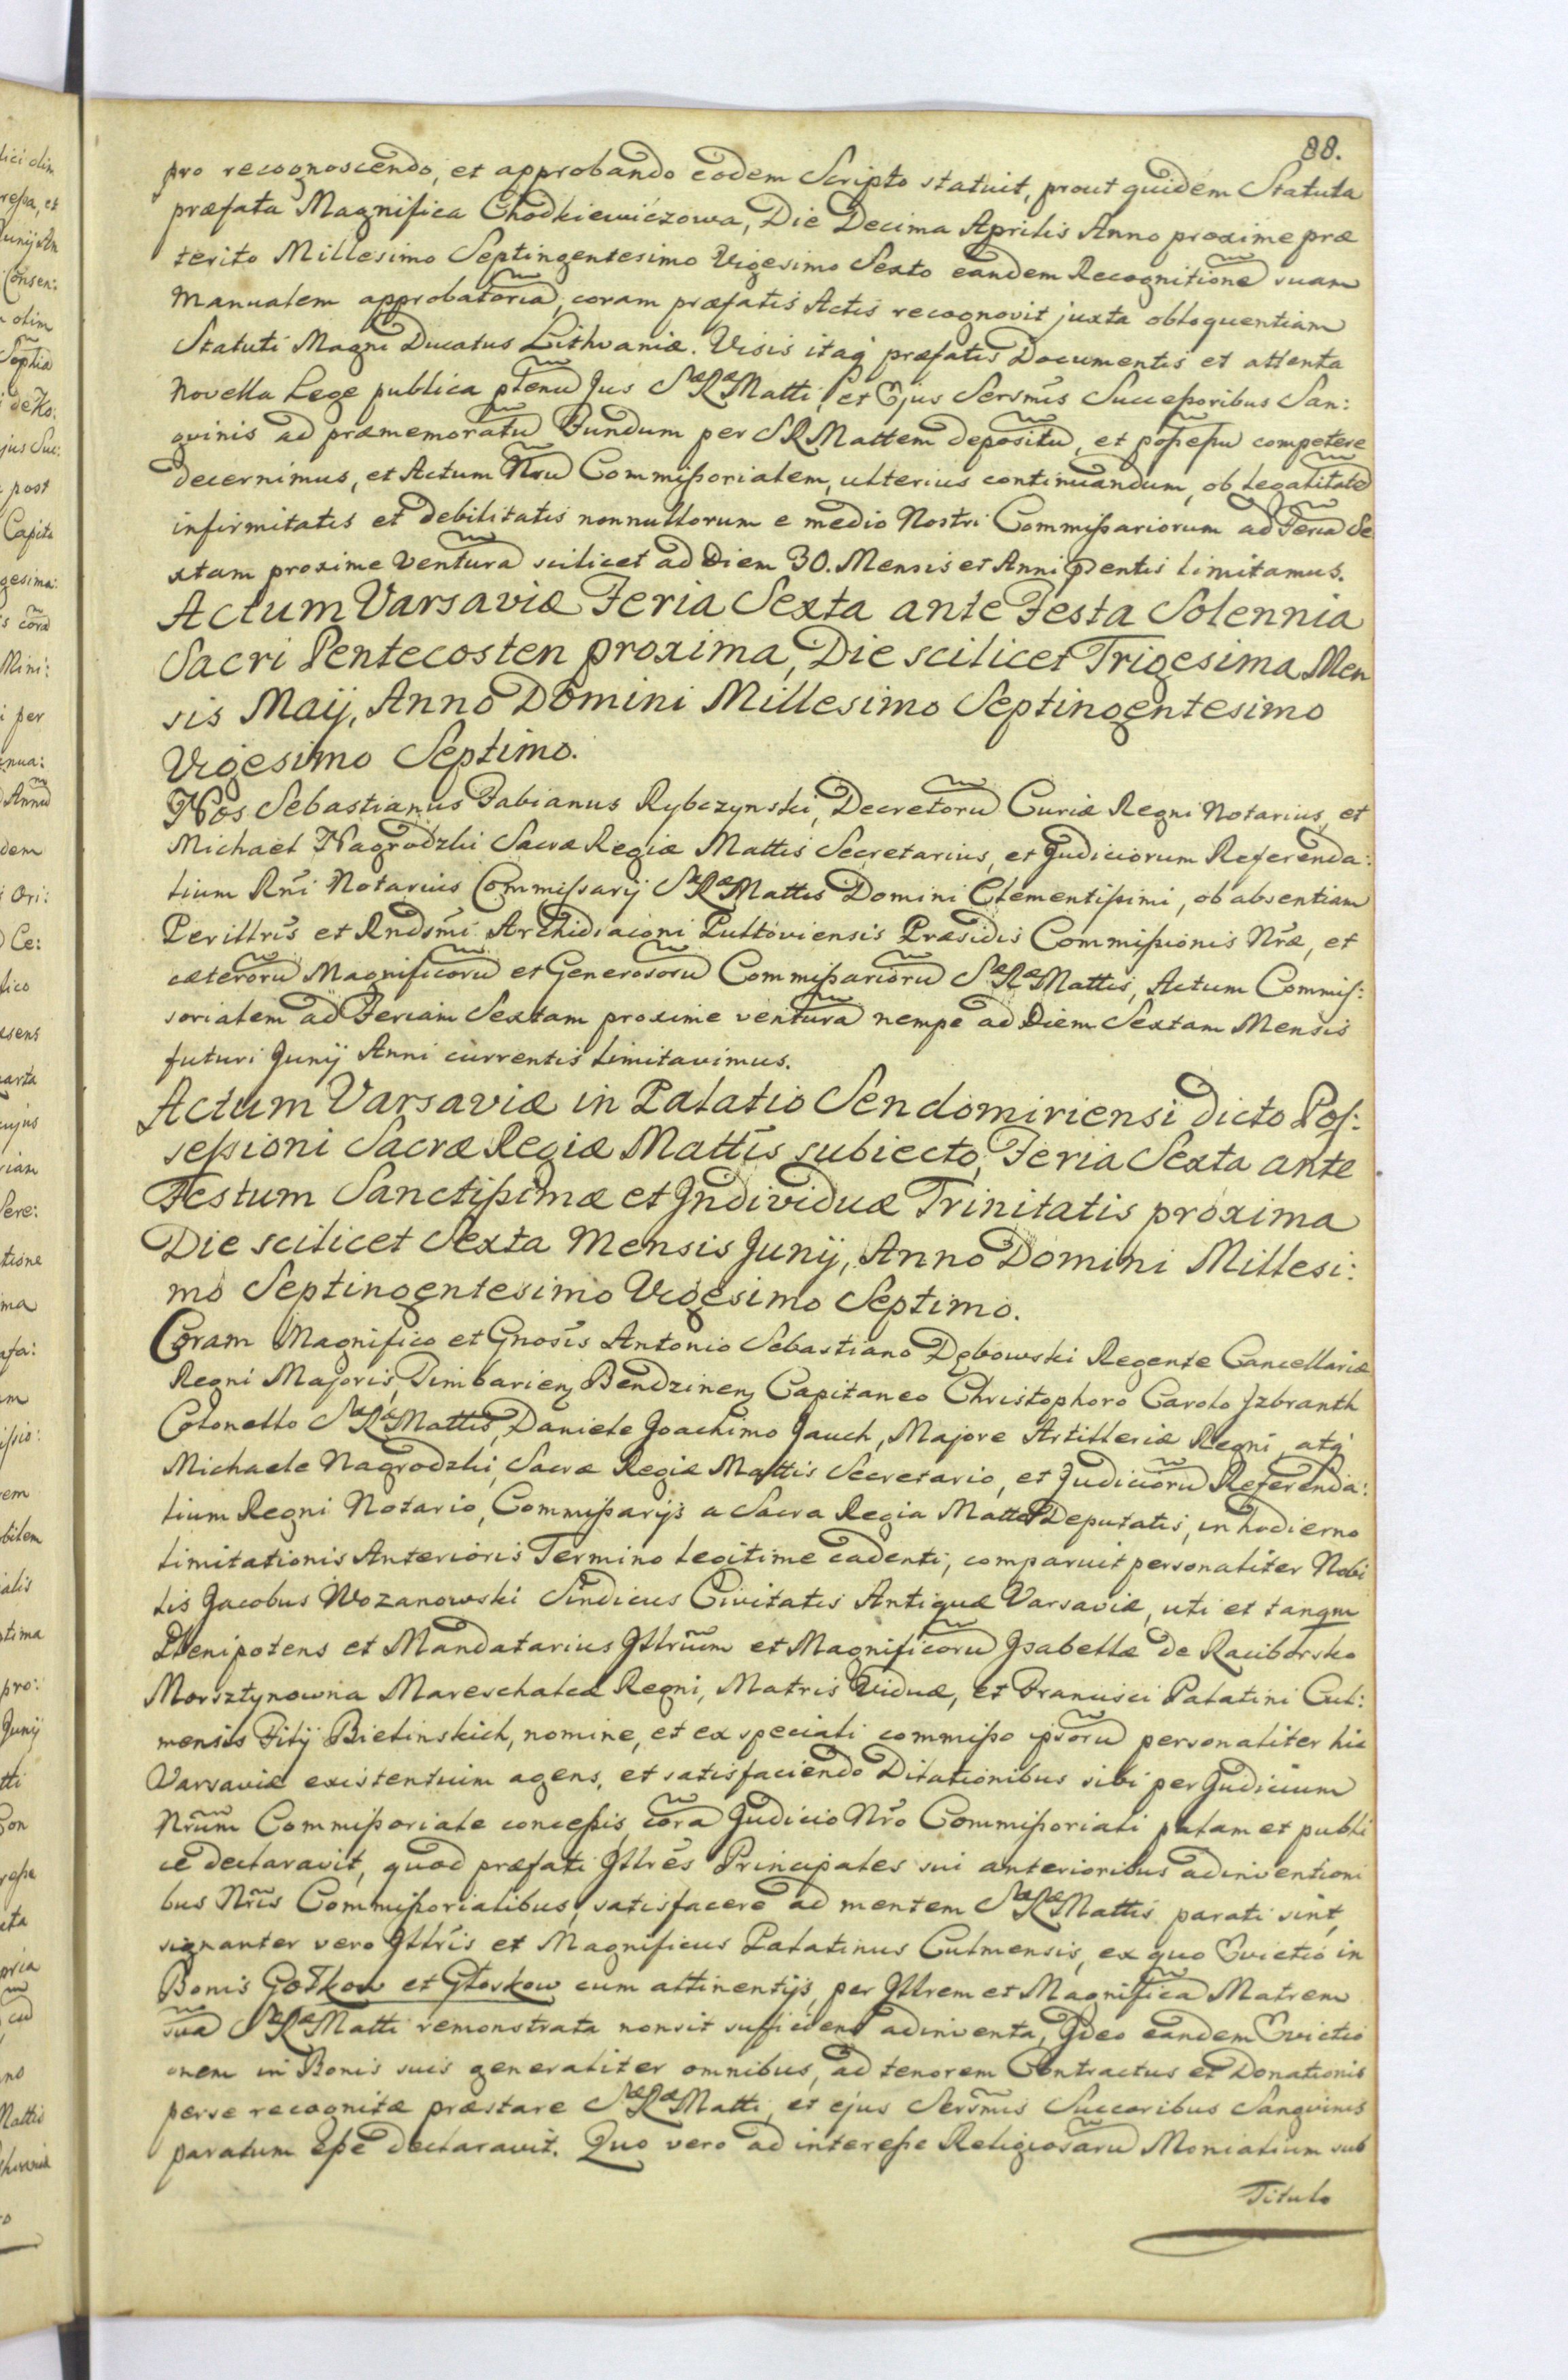 88.
pro recognoscendo, et approbando eodem Scripto statuit, prout quidem Statuta
præfata Magnifica Chodkiewiczowa, Die Decima Aprilis Anno proxime præ
terito Millesimo Septingentesimo Vigesimo Sexto eandem Recognitionē suam
Manualem approbatoriā, coram præfatis Actis recognovit juxta obloquentiam
Statuti Magni Ducatus Lithvaniæ. Visis itaq́ præfatis Documentis et attenta
Novella Lege publica plenū Jus SæRæMatti, et Ejus Sersmīs Succeßoribus San:
gvinis ad præmemoratū Fundum per SRMattem depositū, et poßeßū competere
decernimus, et Actum Nrū Commißorialem, ulterius continuandum, ob legalitatē
infirmitatis et debilitatis nonnullorum e medio Nostri Commißariorum ad Feriā Se
xtam proxime venturā scilicet ad Diem 30. Mensis et Anni pͤntis limitamus.
Actum Varsaviæ Feria Sexta ante Festa Solennia
Sacri Pentecosten proxima, Die scilicet Trigesima Men
sis Maij, Anno Domini Millesimo Septingentesimo
Vigesimo Septimo.
Nos Sebastianus Fabianus Rybczynski, Decretorū Curiæ Regni Notarius, et
Michael Nagrodzki Sacræ Regiæ Mattis Secretarius, et Judiciorum Referenda:
lium Rni Notarius Commißarij SæRæMattis Domini Clementißimi, ob absentiam
Perillris et Rndsmī Archidiaconi Pultoviensis Præsidis Commißionis Nræ, et
cæterorū Magnificorū et Generosorū Commißariorū SæRæMattis, Actum Commiß:
sorialem ad Feriam Sextam proxime venturā nempe ad Diem Sextam Mensis
futuri Junij Anni currentis limitavimus.
Actum Varsaviæ in Palatio Sendomiriensi dicto Pos:
seßioni Sacræ Regiæ Mattis subiecto, Feria Sexta ante
Festum Sanctißimæ et Individuæ Trinitatis proxima
Die scilicet Sexta Mensis Junij, Anno Domini Millesi:
mo Septingentesimo Vigesimo Septimo.
Coram Magnifico et Gnosis Antonio Sebastiano Dębowski Regente Cancellariæ
Regni Majoris, Bendzinen Capitaneo Christophoro Carolo Izbranth
Colonello SæRæMattis, Daniele Joachimo Jauch, Majore Artilleriæ Regni, atq́
Michaele Nagrodzki, Sacræ Regiæ Mattis Secretario, et Judiciorū Referenda:
lium Regni Notario, Commißarijs a Sacra Regia Matte Deputatis, in hodierno
limitationis Anterioris Termino legitime cadenti, comparuit personaliter Nobi
lis Jacobus Wozanowski Sindicus Civitatis Antiquæ Varsaviæ, uti et tanqm
Plenipotens et Mandatarius Illriūm et Magnificorū Isabellæ de Raciborsko
Morsztynowna Mareschalcæ Regni, Matris Viduæ, et Francisci Palatini Cul:
mensis Filij Bielinskich, nomine, et ex speciali commißo ipsorū personaliter hic
Varsaviæ existentium agens, et satisfaciendo Dilationibus sibi per Judicium
Nrūm Commißoriale conceßis, corā Judicio Nrō Commißoriali palam et publi
ce declaravit, quod præfati Illres Principales sui anterioribus adinventioni
bus Nrīs Commißorialibus, satisfacere ad mentem SæRæMattis parati sint,
signanter vero Illris et Magnificus Palatinus Culmensis, ex quo Evictio in
Bonis Gotkow et Głoskow cum attinentijs, per Illrem et Magnificā Matrem
suā SæRæMatti remonstrata nonsit sufficiens adinventa, Ideo eandem Evictio
onem in Bonis suis generaliter omnibus, ad tenorem Contractus et Donationis
perse recognitæ præstare SæRæMatti, et ejus Sersmīs Succoribus Sangvinis
paratum Eße declaravit. Quo vero ad intereße Religiosarū Monialium sub
Titulo